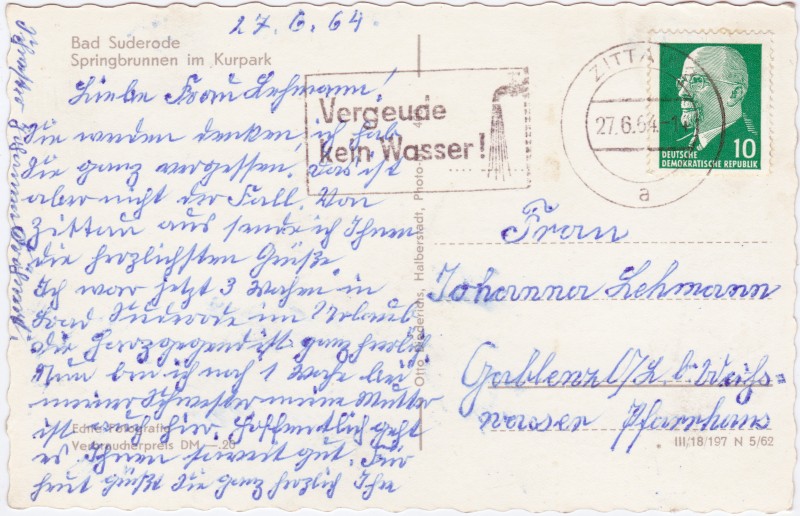 27.6.64
Bad Suderode
Springbrunnen im Kurpark
Liebe Frau Lehmann!
Sie werden denken, ich hab
Sie ganz vergessen. Das ist
aber nicht der Fall. Von
Zittau aus sende ich Ihnen
die herzlichsten Grüße.
Ich war jetzt 3 Wochen in
Bad Suderode im Urlaub
die Harzgegend ist ganz herrlich
Nun bin ich noch 1 Woche bei
meiner Schwester meine Mutter
ist auch hier. Hoffentlich geht
es Ihnen soweit gut. Für
heut grüßt Sie ganz herzlich Ihre
Echte Fotografie
Verbraucherpreis DM —.20
Vergeude
kein Wasser!
ZITTAU
27.6.64
a
10
DEUTSCHE
DEMOKRATISCHE REPUBLIK
Otto Diederichs, Halberstadt, Photo
Frau
Johanna Lehmann
Gablenz O/L b. Weiß-
wasser Pfarrhaus
III/18/197 N 5/62